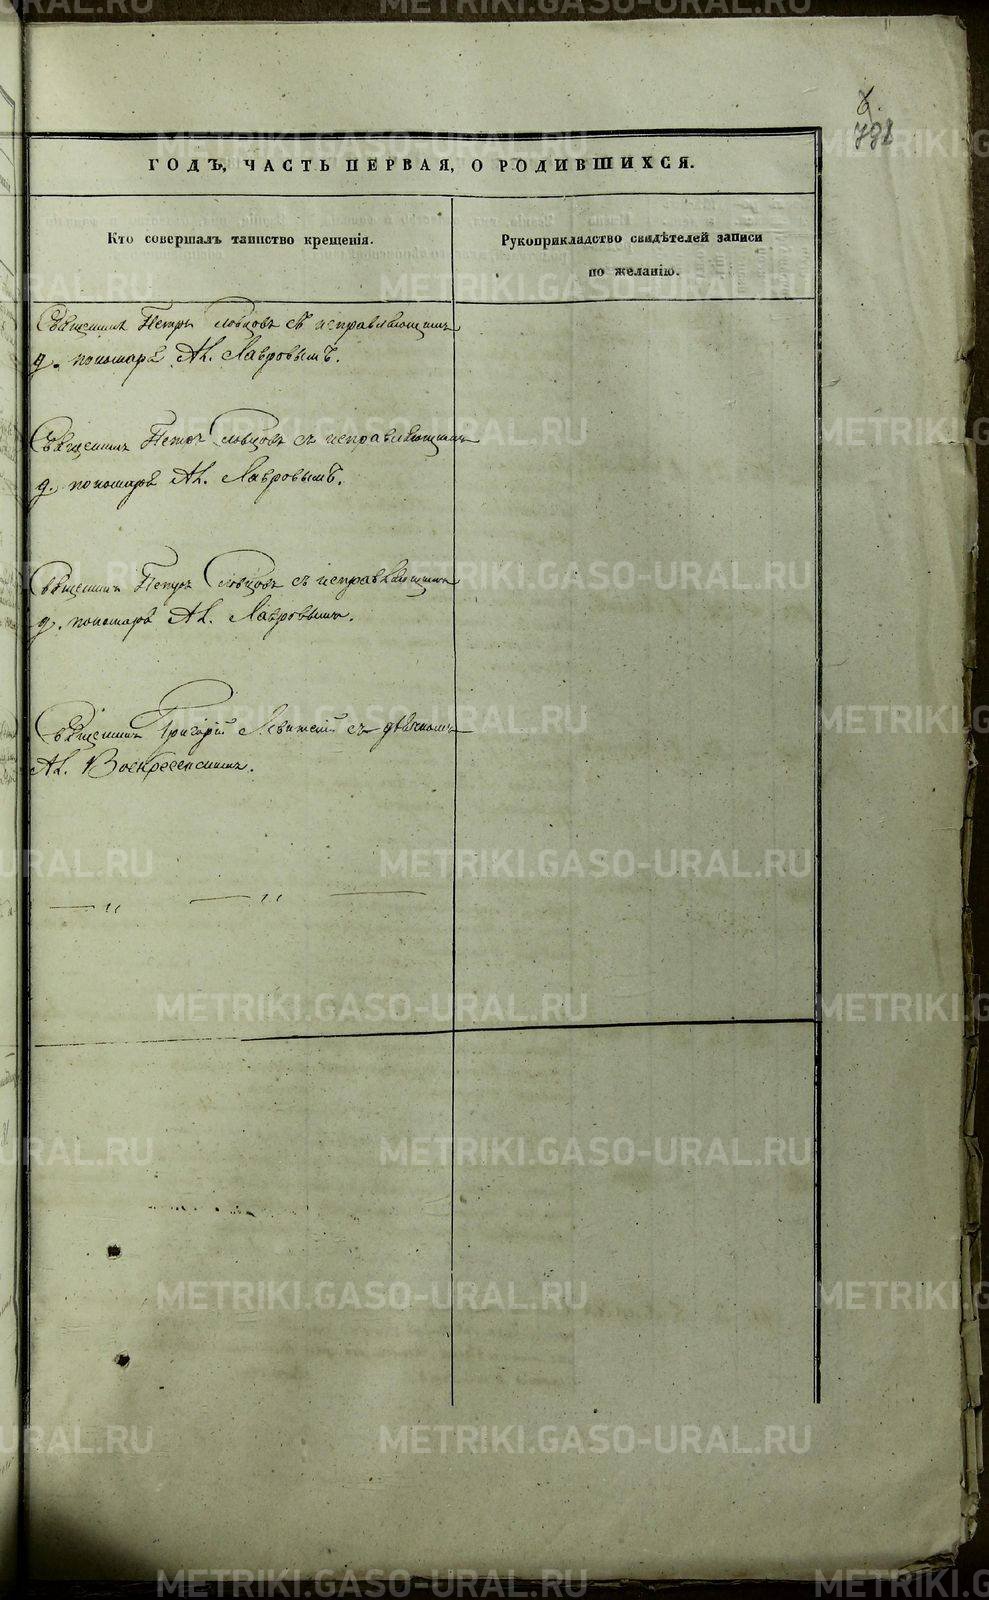 6.
798
ГОДЪ, ЧАСТЬ ПЕРВАЯ, О РОДИВШИХСЯ.
Кто совершалъ таинство крещенія.
Рукоприкладство свидѣтелей записи
по желанію.
Священникъ Петръ Словцовъ съ исправляющимъ
д. пономаря Ал. Лавровымъ.
Священникъ Петръ Словцовъ съ исправляющимъ
д. пономаря Ал. Лавровымъ.
Священникъ Петръ Словцовъ съ исправляющимъ
д. пономаря Ал. Лавровымъ.
Священникъ Григорій Левитскій съ дьячкомъ
Ал. Воскресенскимъ.
METRIKI.GASO-URAL.RU